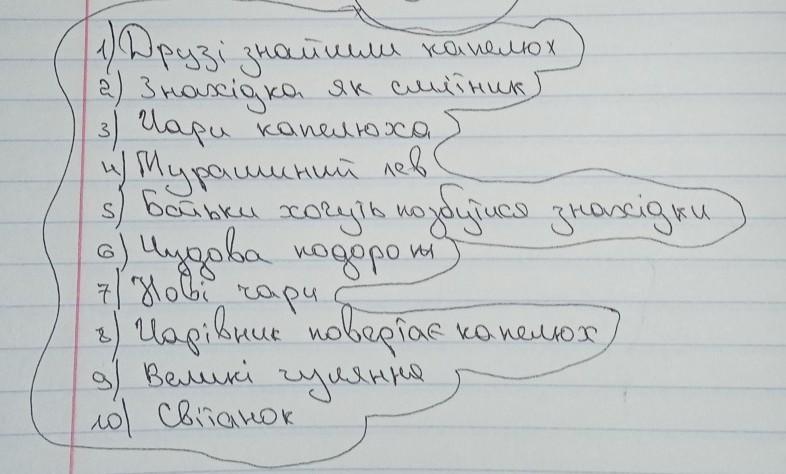 1) Друзі знайшли капелюх
2) Знахідка як смітник
3) Чари капелюха
4) Мурашиний лев
5) Батьки хочуть позбутися знахідки
6) Чудова подорож
7) Нові чари
8) Чарівник повертає капелюх
9) Великі гуляння
10) Світанок